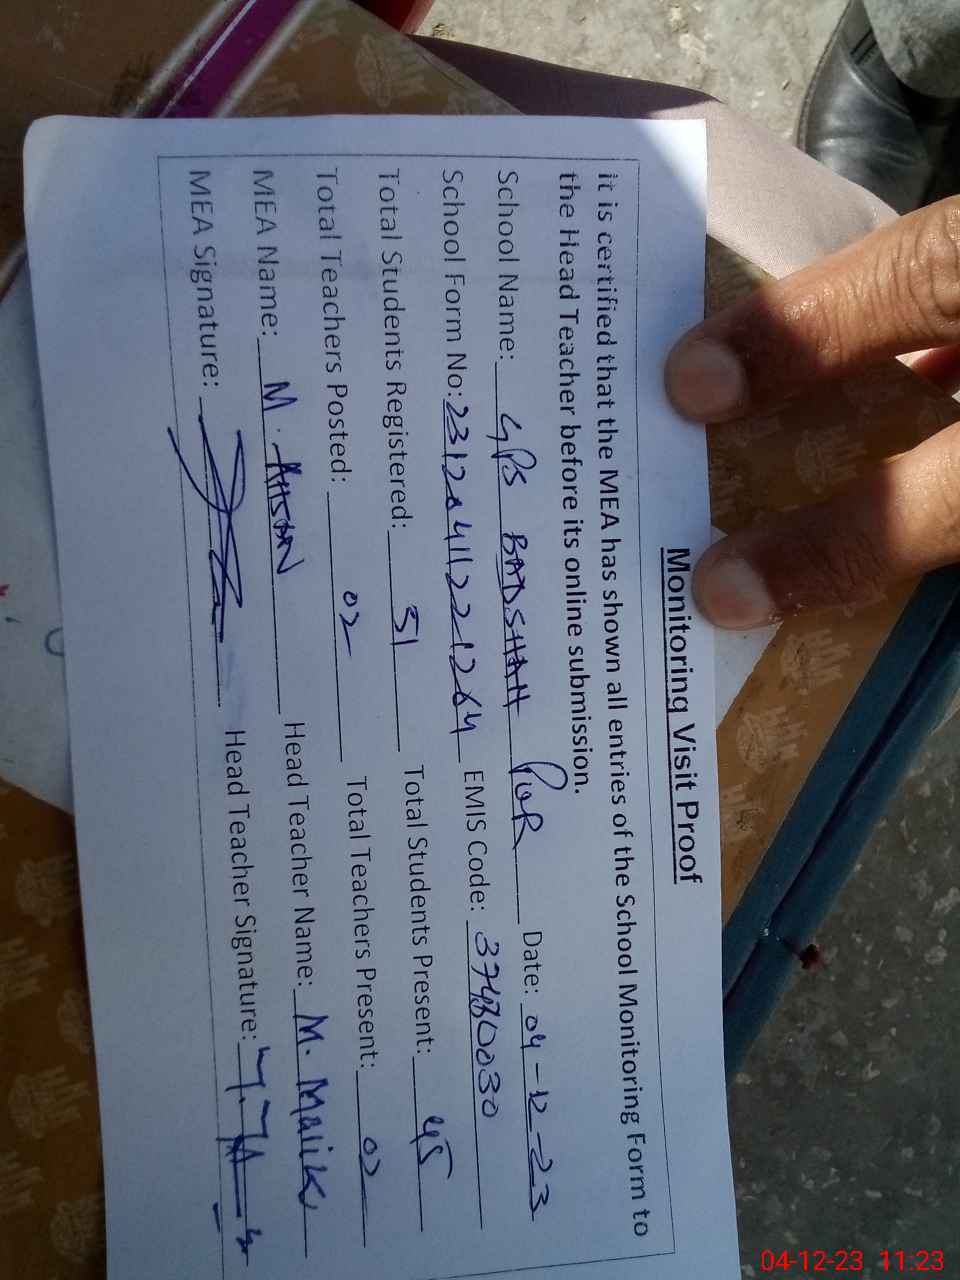 Monitoring Visit Proof
it is certified that the MEA has shown all entries of the School Monitoring Form to
the Head Teacher before its online submission.
School Name: GPS BADSHAH PUR Date: 04-12-23
School Form No: 23120411221264 EMIS Code: 37480030
Total Students Registered: 51 Total Students Present: 45
Total Teachers Posted: 02 Total Teachers Present: 02
MEA Name: M. AHSAN Head Teacher Name: M. Malik
MEA Signature: Head Teacher Signature:
04-12-23 11:23